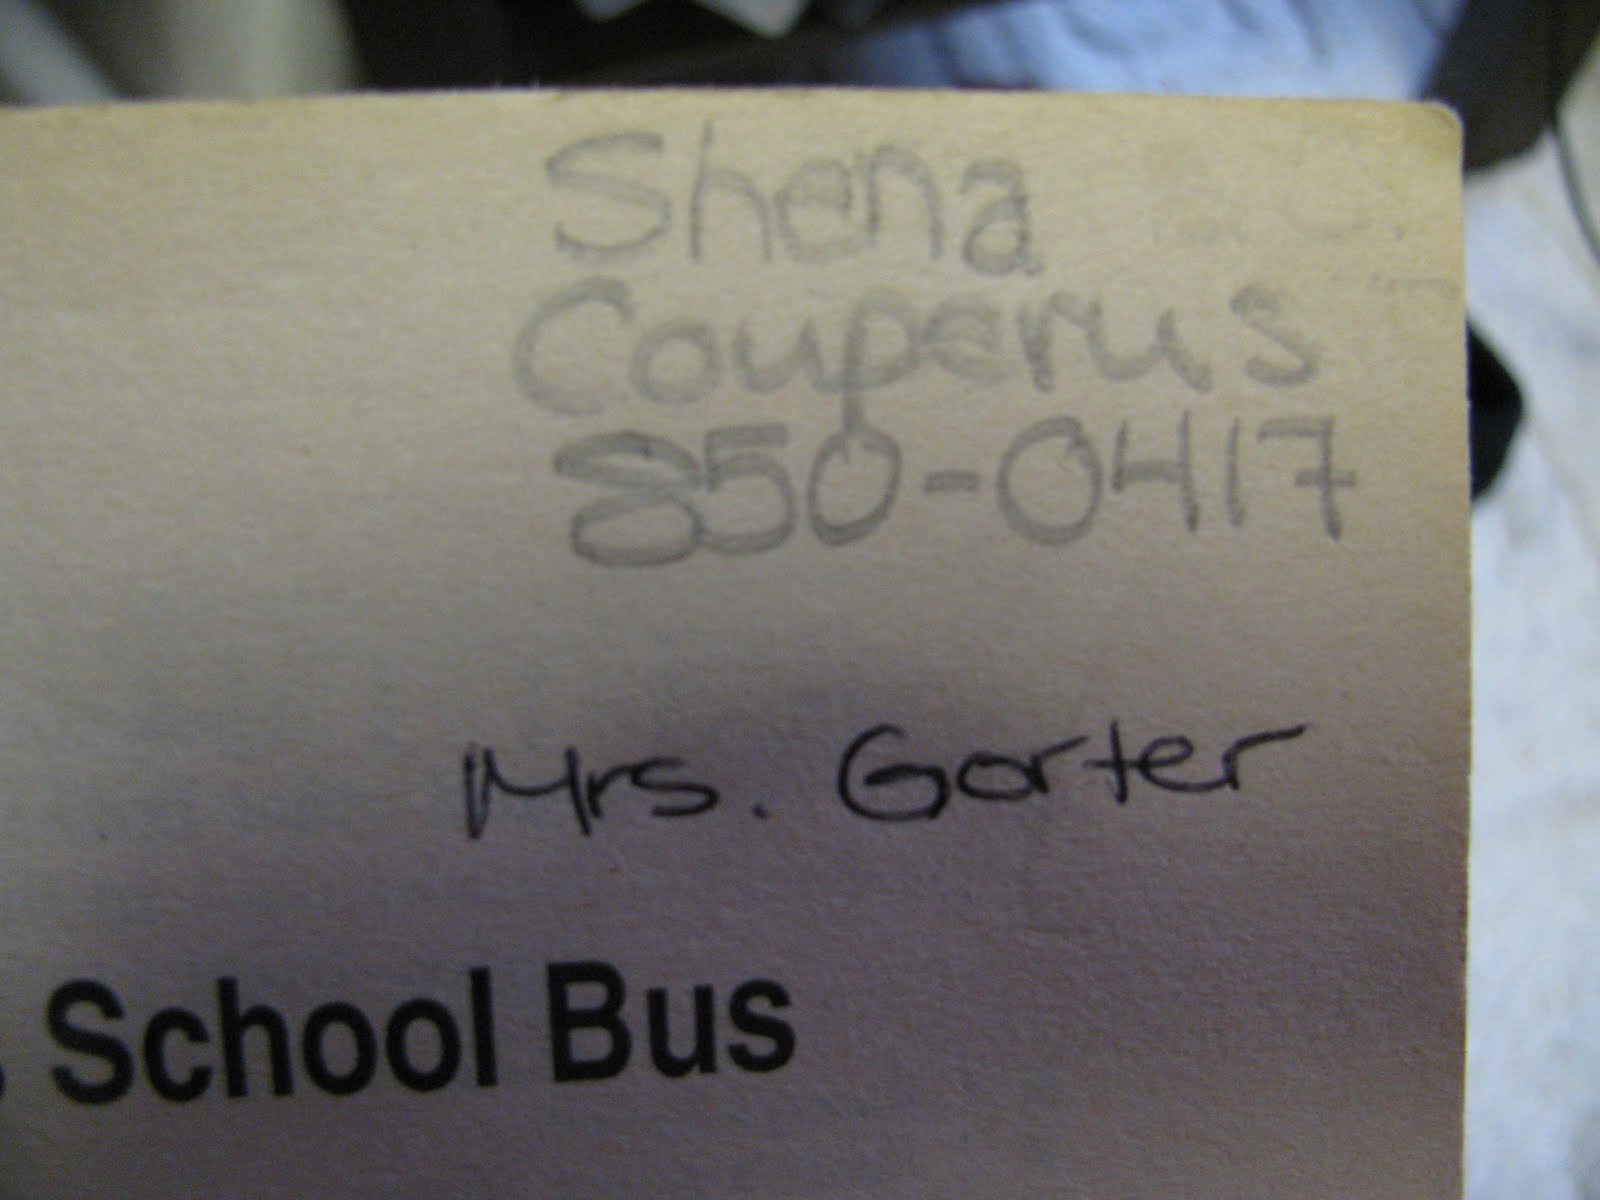 Shena
Couperus
850-0417
Mrs. Gorter
School Bus